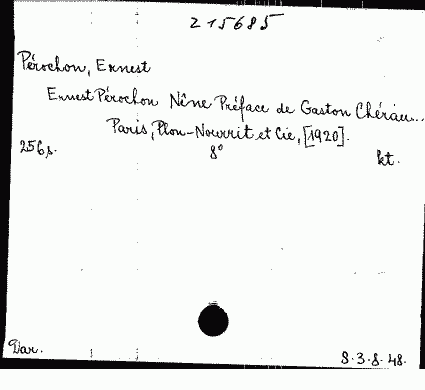 215685
Pérochon, Ernest
Ernest Pérochon Nêne Préface de Gaston Chérau...
Paris, Plon-Nourrit et Cie, [1920].
256 s. 8° kt.
Dar. 8.3.8.48.